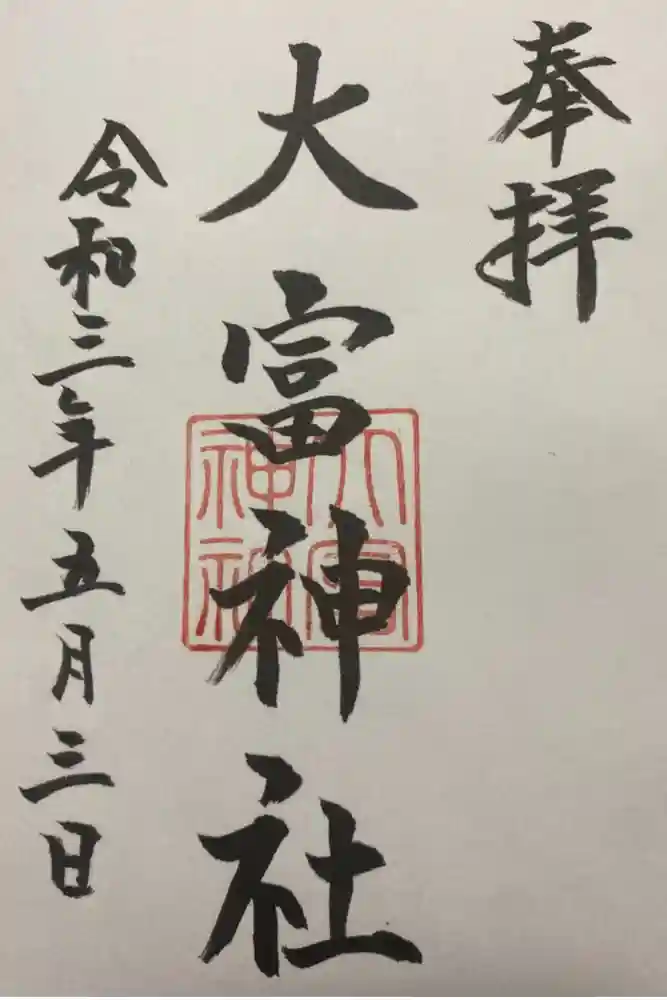 奉拝
大富神社
大富
神社
令和三年五月三日